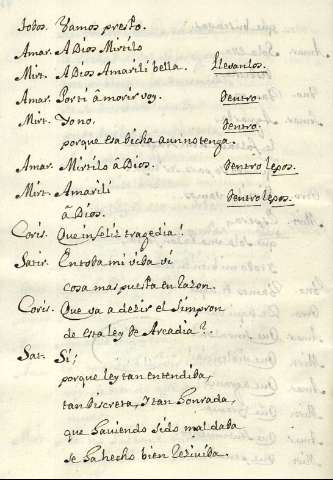 todos. Vamos presto.
Amar. A Dios Mirtilo
Mirt. A Dios Amarili bella. Llevanlos.
Amar. Por ti â morir voy. dentro.
Mirt. Yo no, dentro.
porque esa dicha aun no tenga.
Amar. Mirtilo â Dios. dentro lejos.
Mirt. Amarili dentro lejos.
â Dios.
Coris. Que infeliz tragedia!
Satir. En toda mi vida vi
cosa mas puesta en razon.
Coris. Que va a dezir el
de esta ley de Arcadia?.
Sat. Si;
porque ley tan entendida,
tan discreta, I tan honrada,
que haviendo sido mal dada
se ha hecho bien rezivida.